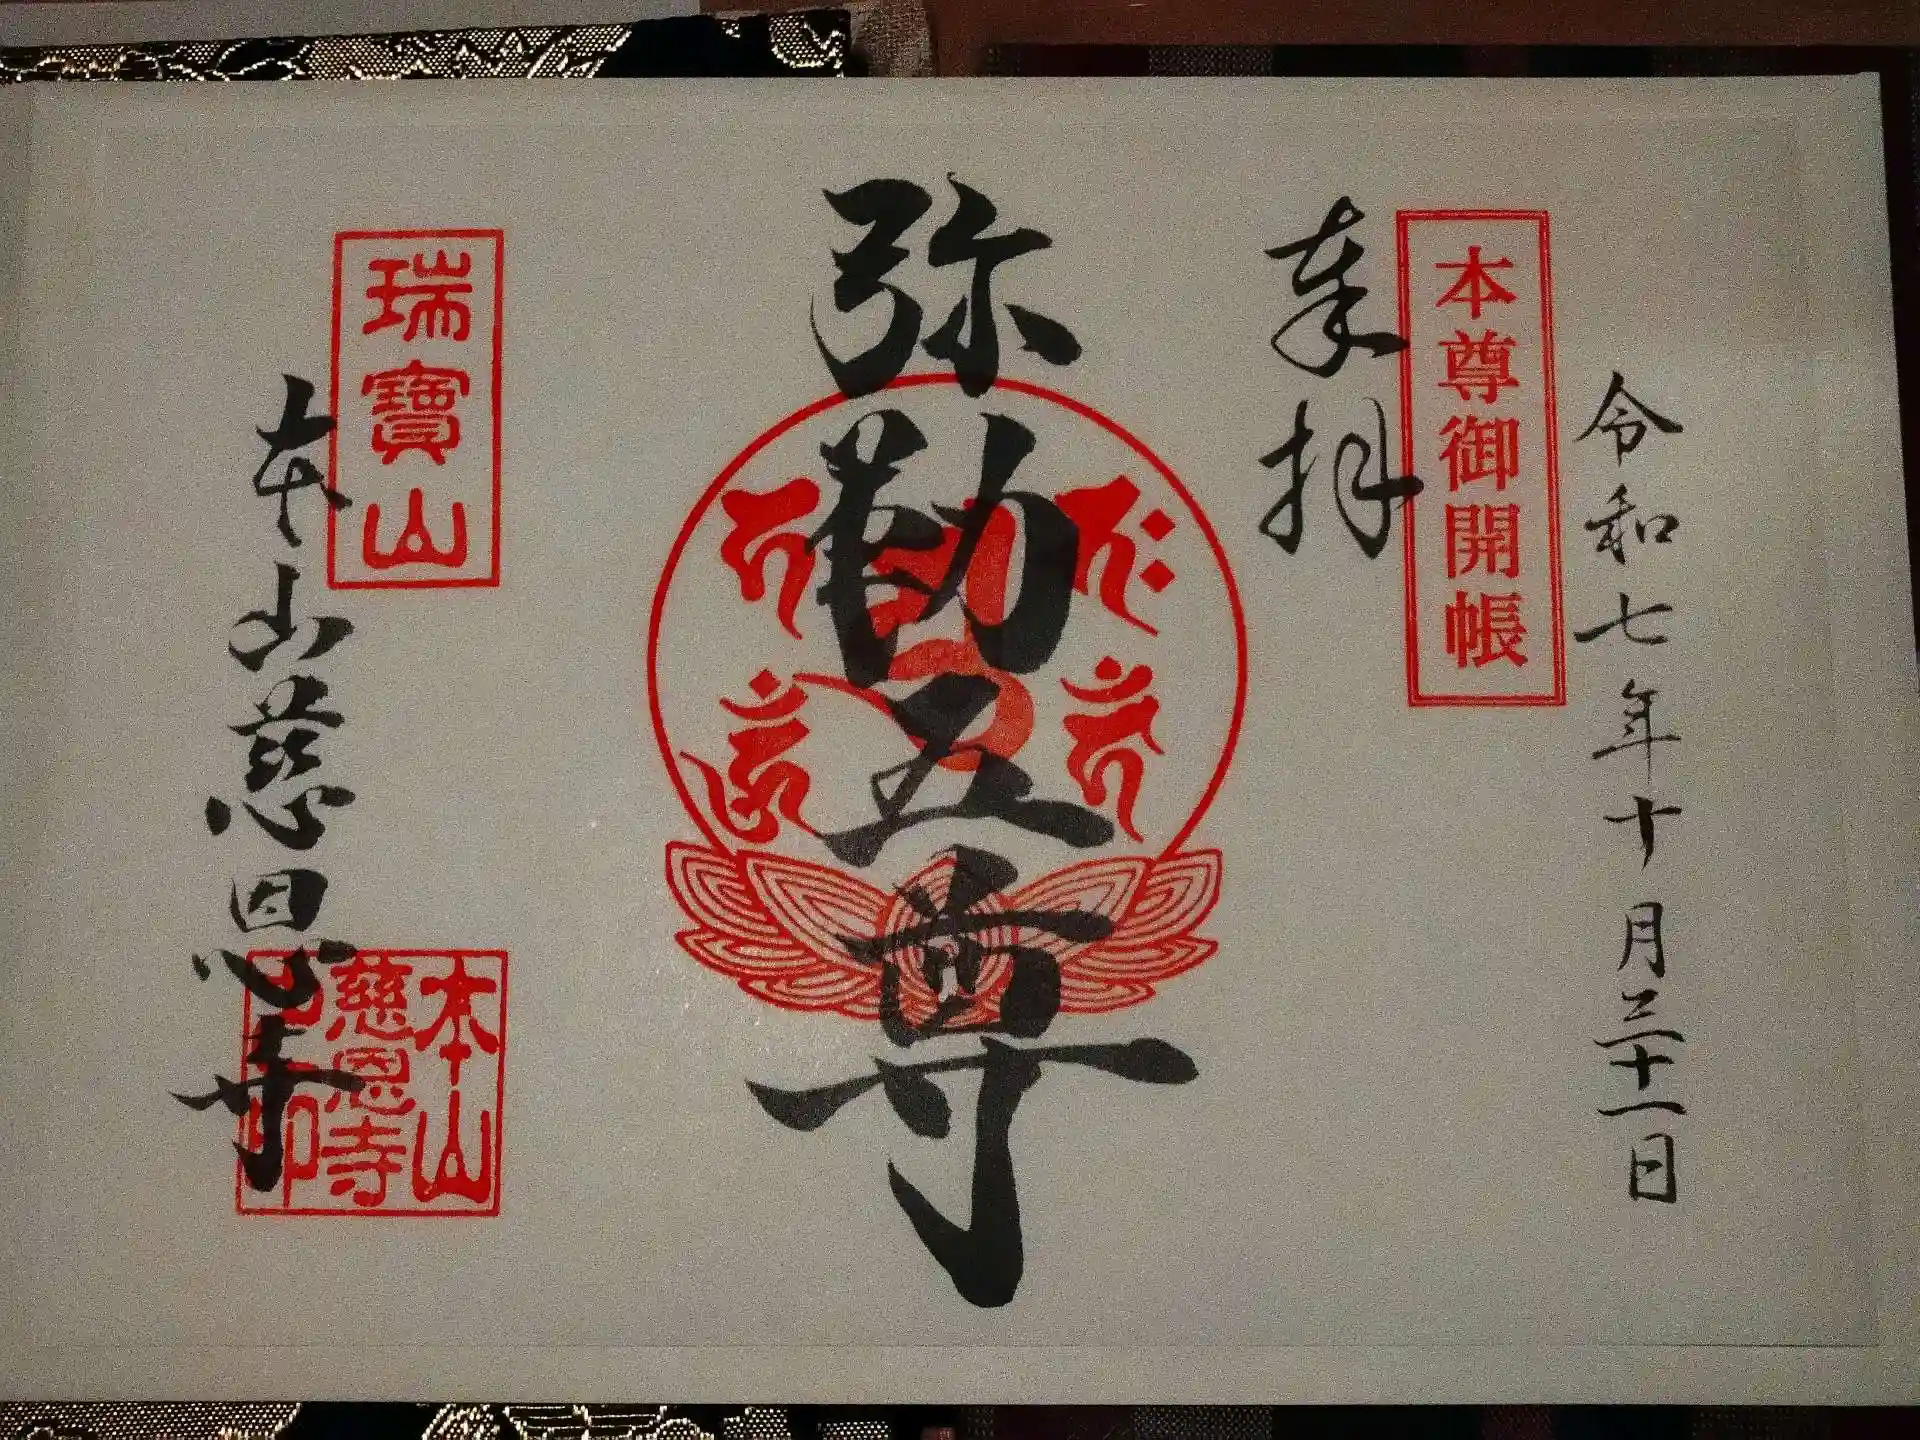 令和七年十月三十一日
本尊御開帳
奉拝
弥勒五尊
瑞寶山
本山慈恩寺
本山
慈恩寺